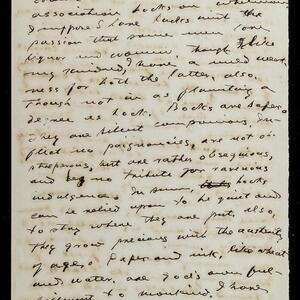 association books on
I suppose I love books with the
passion that some men love
liquor and women, though, like
my kindred, I have a weak-
ness for both the latter, also,
though not in as a
degree as books. Books are superior
they are silent companions, in-
flict no poignancies, are not ob-
streperous, but are rather obsequious,
and no tribute for ravenous
indulgence. In sum, books
can be relied upon to be quiet and
to stay where they are put, also,
they grow precious with the austerity
of age. Paper and ink, like wheat
and water, are gods own ful-
to mankind. I have